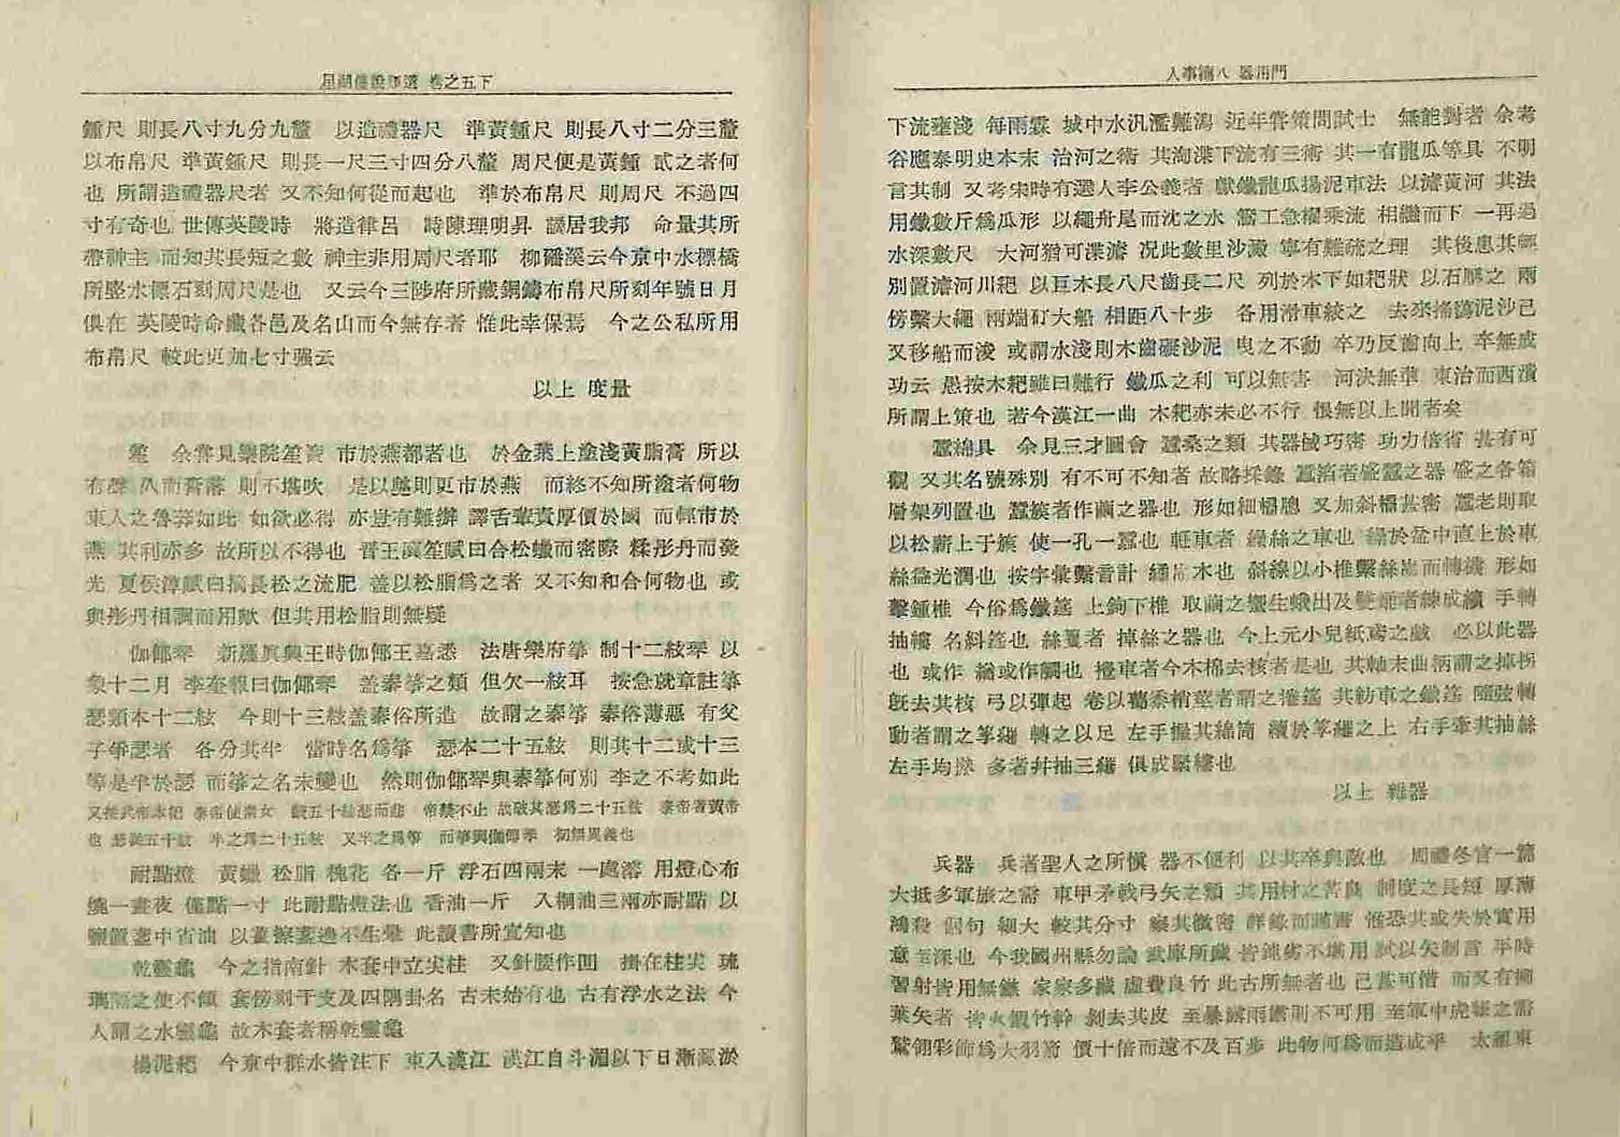 星湖僿說類選 卷之五下
鍾尺 則長八寸九分九釐 以造禮器尺 準黃鍾尺 則長八寸二分三釐
以布帛尺 準黃鍾尺 則長一尺三寸四分八釐 周尺便是黃鍾 貳之者何
也 所謂造禮器尺者 又不知何從而起也 準於布帛尺 則周尺 不過四
寸有奇也 世傳英陵時 將造律呂 時陳理明昇 謫居我邦 命量其所
帶神主 而知其長短之數 神主非用周尺者耶 柳磻溪云今京中水標橋
所竪水標石刻周尺是也 又云今三陟府所藏銅鑄布帛尺所刻年號日月
俱在 英陵時命藏各邑及名山而今無存者 惟此幸保焉 今之公私所用
布帛尺 較此更加七寸强云
以上 度量
笙 余嘗見樂院笙簧 市於燕都者也 於金葉上塗淺黃脂膏 所以
有聲 久而膏落 則不堪吹 是以輒則更市於燕 而終不知所塗者何物
東人之魯莽如此 如欲必得 亦豈有難辦 譯舌輩責厚價於國 而輕市於
燕 其利亦多 故所以不得也 晋王廙笙賦曰合松蠟而密際 糅彤丹而發
光 夏侯淳賦曰摘長松之流肥 盖以松脂爲之者 又不知和合何物也 或
與彤丹相調而用歟 但共用松脂則無疑
伽倻琴 新羅眞興王時伽倻王嘉悉 法唐樂府箏 制十二絃琴 以
象十二月 李奎報曰伽倻琴 盖秦箏之類 但欠一絃耳 按急就章註箏
瑟類本十二絃 今則十三絃盖秦俗所造 故謂之秦箏 秦俗薄惡 有父
子爭瑟者 各分其半 當時名爲箏 瑟本二十五絃 則其十二或十三
等是半於瑟 而箏之名未變也 然則伽倻琴與秦箏何別 李之不考如此
又按武帝本紀 泰帝使素女 皷五十絃瑟而悲 帝禁不止 故破其瑟爲二十五絃 泰帝者黃帝
也 瑟從五十絃 半之爲二十五絃 又半之爲箏 而箏與伽倻琴 初無異義也
耐點燈 黃蠟 松脂 槐花 各一斤 浮石四兩末 一處溶 用燈心布
繞一晝夜 僅點一寸 此耐點燈法也 香油一斤 入桐油三兩亦耐點 以
鹽置盞中省油 以薑擦盞邊不生暈 此讀書所宜知也
乾靈龜 今之指南針 木套中立尖柱 又針腰作凹 掛在柱尖 琉
璃隔之使不傾 套傍刻干支及四隅卦名 古未始有也 古有浮水之法 今
人謂之水靈龜 故木套者稱乾靈龜
揚泥耙 今京中群水皆注下 東入漢江 漢江自斗湄以下日漸澱淤
人事篇八 器用門
下流壅淺 每雨霖 城中水汎濫難瀉 近年嘗策問試士 無能對者 余考
谷應泰明史本末 治河之術 其淘渫下流有三術 其一有龍瓜等具 不明
言其制 又考宋時有選人李公義者 獻鐵龍瓜揚泥車法 以濬黃河 其法
用鐵數斤爲瓜形 以繩舟尾而沈之水 篙工急櫂乘流 相繼而下 一再過
水深數尺 大河猶可渫濬 况此數里沙澱 寧有難疏之理 其後患其輕
別置濬河川耙 以巨木長八尺齒長二尺 列於木下如耙狀 以石壓之 兩
傍繫大繩 兩端矴大船 相距八十步 各用滑車絞之 去來搖蕩泥沙已
又移船而浚 或謂水淺則木齒礙沙泥 曳之不動 卒乃反齒向上 卒無成
功云 愚按木耙雖曰難行 鐵瓜之利 可以無害 河決無準 東治而西潰
所謂上策也 若今漢江一曲 木耙亦未必不行 恨無以上聞者矣
蠶綿具 余見三才圖會 蠶桑之類 其器械巧密 功力倍省 甚有可
觀 又其名號殊別 有不可不知者 故略採錄 蠶箔者盛蠶之器 盛之各箱
層架列置也 蠶簇者作繭之器也 形如細櫺牕 又加斜櫺甚密 蠶老則取
以松薪上于簇 使一孔一蠶也 軖車者 繰絲之車也 繰於盆中直上於車
絲益光潤也 按字彙繫音計 繘 木也 斜線以小椎繫絲 而轉機 形如
擊鍾椎 今俗爲鐵筳 上鉤下椎 取繭之壞生蛾出及雙 者練成纊 手轉
抽縷 名糾筳也 絲籰者 掉絲之器也 今上元小兒紙鳶之戲 必以此器
也 或作 也 攪車者今木棉去核者是也 其軸末曲柄謂之掉拐
旣去其核 弓以彈起 卷以葛黍梢莖者謂之捲筳 其紡車之鐵筳 隨弦轉
動者謂之莩 轉之以足 左手握其綿筒 續於莩 之上 右手牽其抽絲
左手均撚 多者幷抽三 俱成緊縷也
以上 雜器
兵器 兵者聖人之所愼 器不便利 以其卒與敵也 周禮冬官一篇
大抵多軍旅之需 車甲矛戟弓矢之類 其用材之苦良 制度之長短 厚薄
鴻殺 倨句 細大 較其分寸 察其微密 詳錄而 書 惟恐其或失於實用
意至深也 今我國州縣勿論 武庫所藏 皆鈍劣不堪用 試以矢制言 平時
習射皆用無鏃 家家多藏 虛費良竹 此古所無者也 已甚可惜 而又有柳
葉矢者 皆火煆竹幹 剝去其皮 至暴露雨霑則不可用 至軍中虎 之需
鷲翎彩飾爲大羽箭 價十倍而遠不及百步 此物何爲而造成乎 太祖東